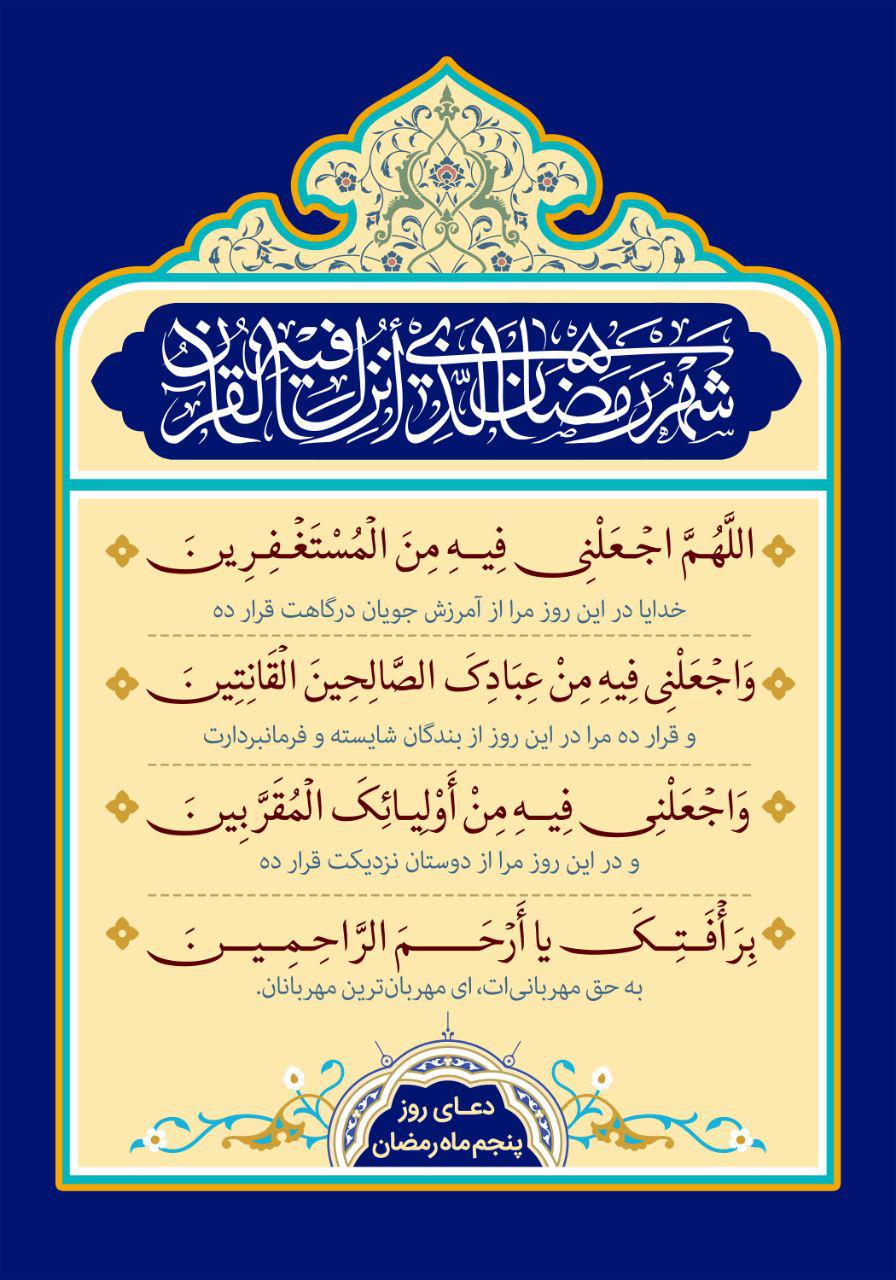 شهر رمضان الذي أنزل فيه القرآن
اللَّهُمَّ اجْعَلْنِی فِیهِ مِنَ الْمُسْتَغْفِرِینَ
خدایا در این روز مرا از آمرزش جویان درگاهت قرار ده
وَاجْعَلْنِی فِیهِ مِنْ عِبَادِکَ الصَّالِحِینَ الْقَانِتِینَ
و قرار ده مرا در این روز از بندگان شایسته و فرمانبردارت
وَاجْعَلْنِی فِیهِ مِنْ أَوْلِیائِکَ الْمُقَرَّبِینَ
و در این روز مرا از دوستان نزدیکت قرار ده
بِرَأْفَتِکَ یا أَرْحَمَ الرَّاحِمِینَ
به حق مهربانی‌ات، ای مهربان‌ترین مهربانان.
دعای روز
پنجم ماه رمضان